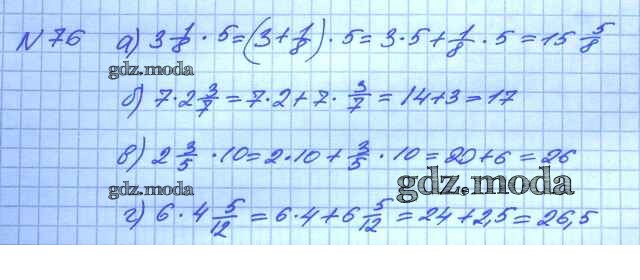 N 76 а) 3 1/8 · 5 = (3 + 1/8) · 5 = 3 · 5 + 1/8 · 5 = 15 5/8
gdz.moda
gdz.moda
б) 7 · 2 3/7 = 7 · 2 + 7 · 3/7 = 14 + 3 = 17
в) 2 3/5 · 10 = 2 · 10 + 3/5 · 10 = 20 + 6 = 26
gdz.moda
gdz.moda
г) 6 · 4 5/12 = 6 · 4 + 6 5/12 = 24 + 2,5 = 26,5
gdz.moda